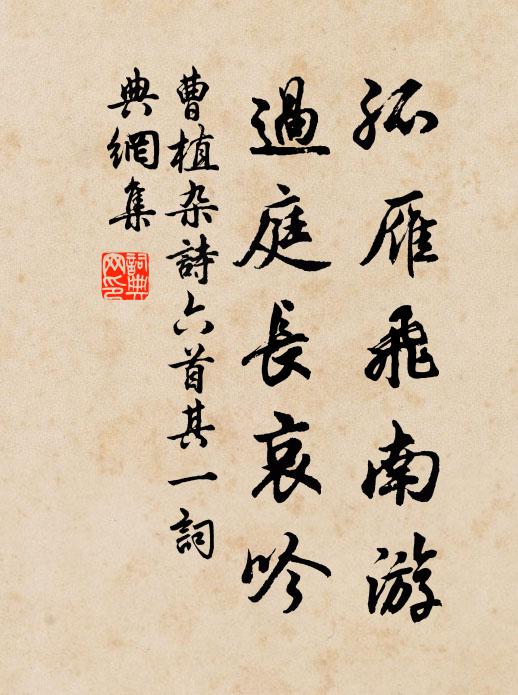 孤雁飛南游
過庭長哀吟
曹植杂詩六首其一詞
典網集
詞典网印